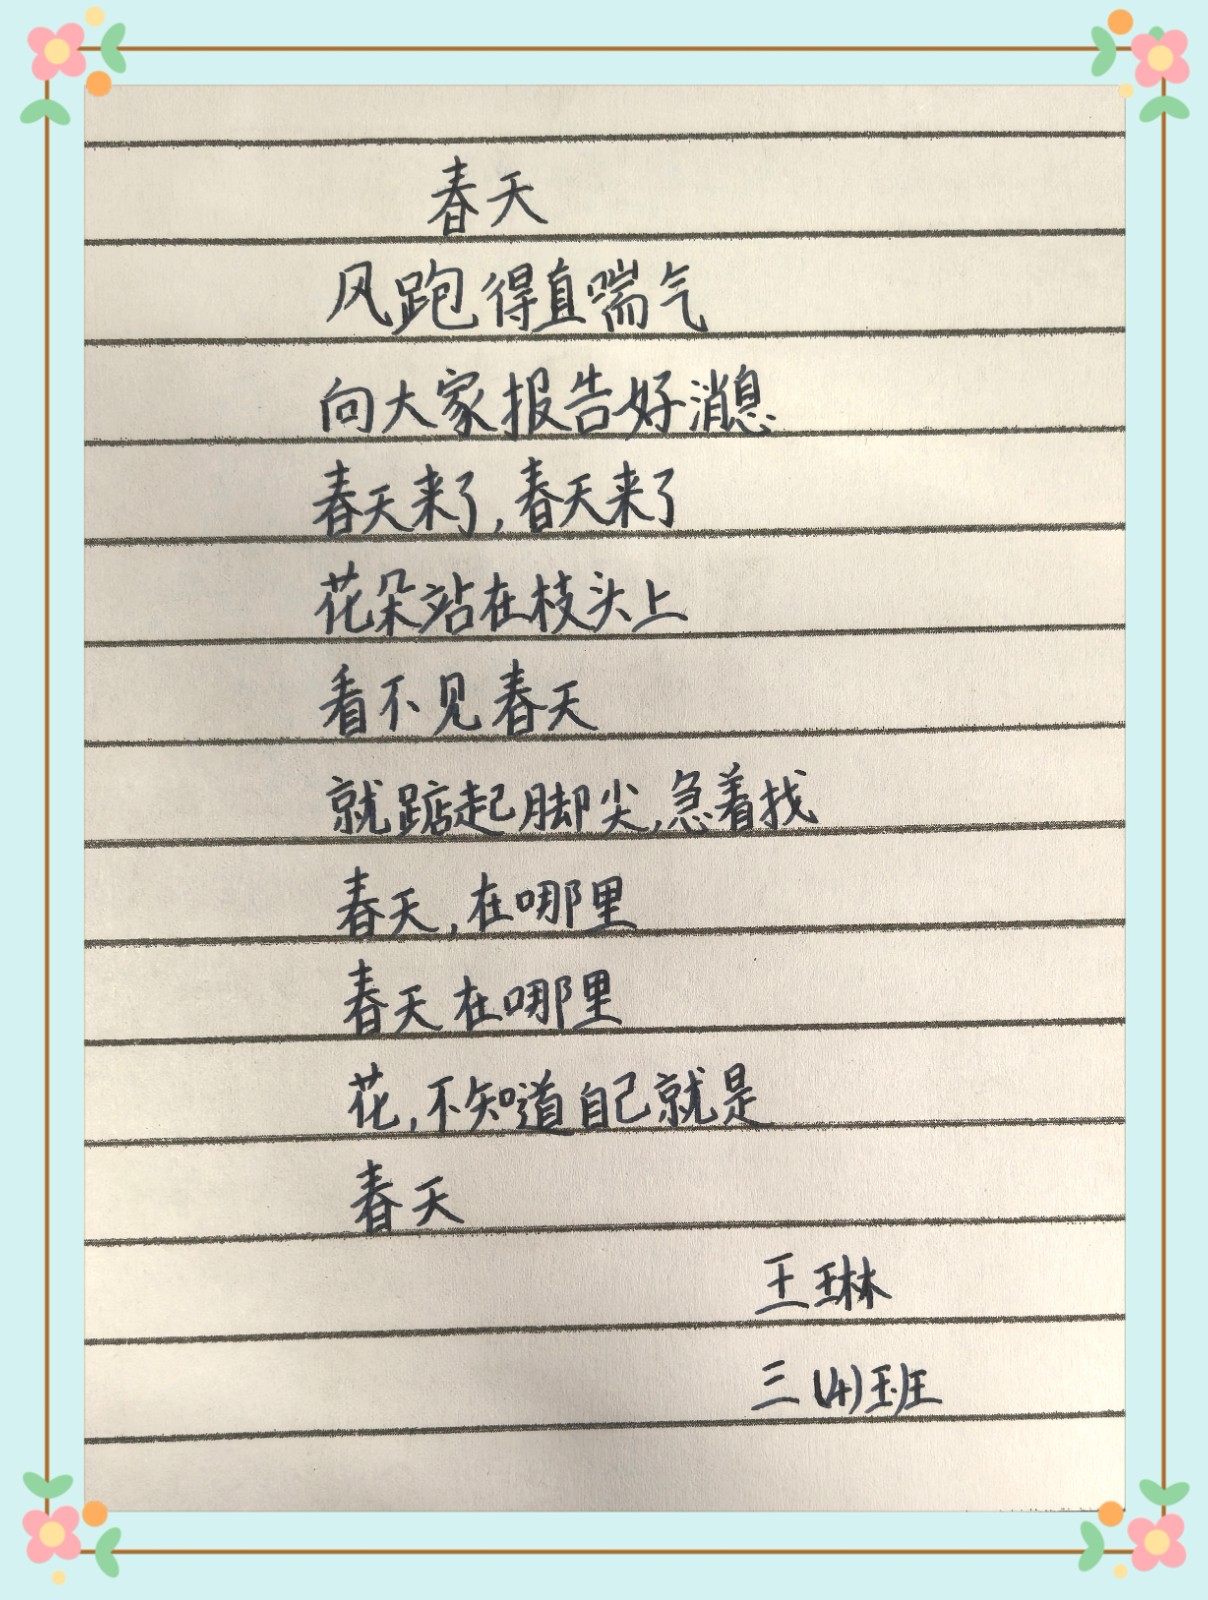 春天
风跑得直喘气
向大家报告好消息
春天来了,春天来了
花朵站在枝头上
看不见春天
就踮起脚尖,急着找
春天,在哪里
春天在哪里
花,不知道自己就是
春天
王琳
三(4)班